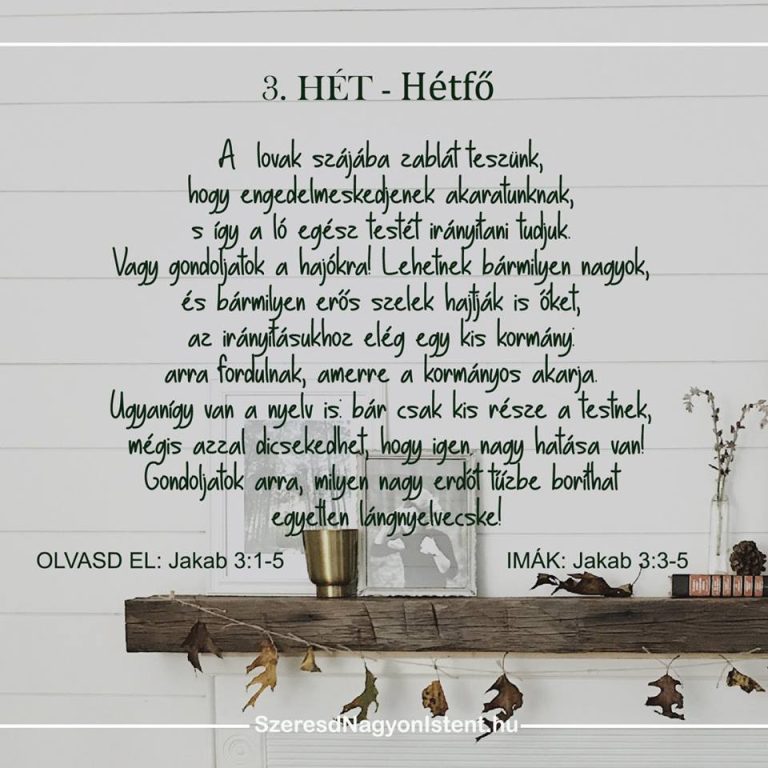 3. HÉT - Hétfő
A lovak szájába zablát teszünk,
hogy engedelmeskedjenek akaratunknak,
s így a ló egész testét irányítani tudjuk.
Vagy gondoljatok a hajókra! Lehetnek bármilyen nagyok,
és bármilyen erős szelek hajtják is őket,
az irányításukhoz elég egy kis kormány:
arra fordulnak, amerre a kormányos akarja.
Ugyanígy van a nyelv is: bár csak kis része a testnek,
mégis azzal dicsekedhet, hogy igen nagy hatása van!
Gondoljatok arra, milyen nagy erdőt tűzbe boríthat
egyetlen lángnyelvecske!
OLVASD EL: Jakab 3:1-5
IMÁK: Jakab 3:3-5
SzeresdNagyonIstent.hu